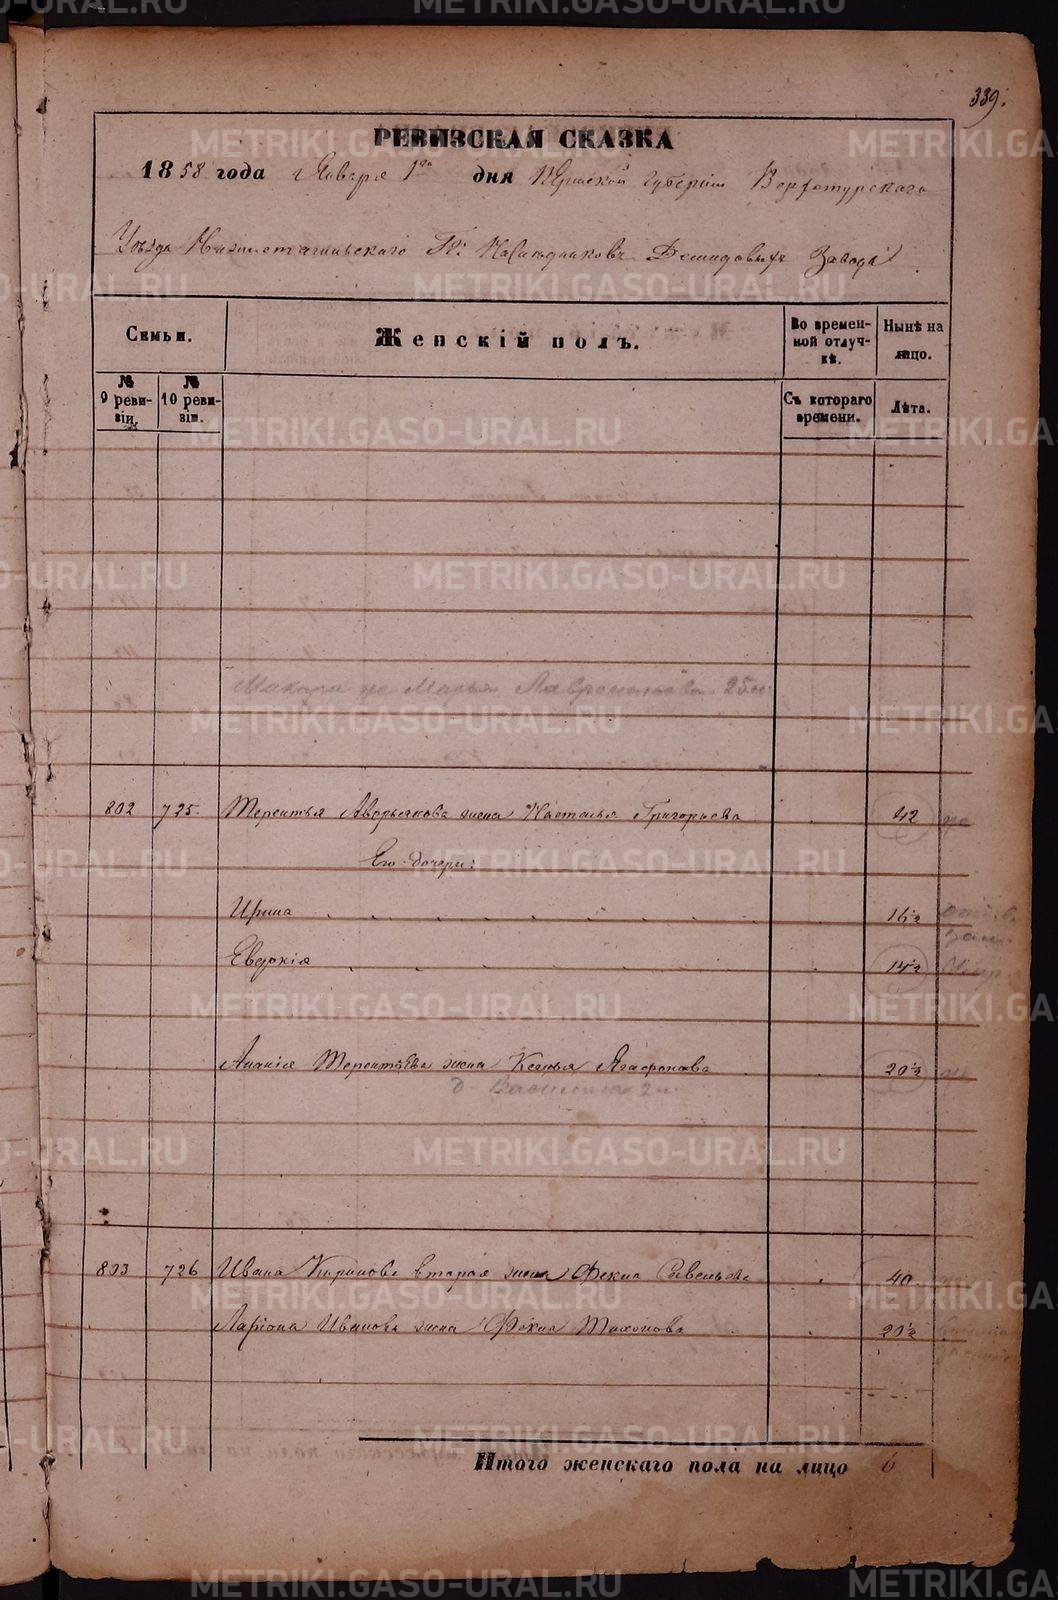 339.
РЕВИЗСКАЯ СКАЗКА
1858 года Января 1го дня Пермской Губернии Верхотурскаго
Уезда Нижнетагильскаго Гг. Наследников Демидовых Завода
Семьи.
Женскій полъ.
Во времен-
ной отлуч-
кѣ.
Нынѣ на
лицо.
№
9 реви-
зіи.
№
10 реви-
зіи.
Съ котораго
времени.
Лѣта.
Макара же Марья Лаврентьева 25
802 725. Терентья Аверьянова жена Настасья Григорьева 42
Его дочери:
Ирина 16½
Евдокія 14½
Ананія Терентьева жена Ксенья Агафонова 20½
д Василиса 2
803 726 Ивана Кирилова вторая жена Фекла Савельева 40
Ларіона Иванова жена Фекла 20½
Итого женскаго пола на лицо 6
METRIKI.GASO-URAL.RU